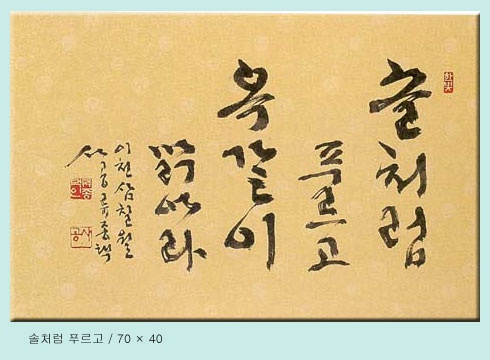 솔처럼
푸르고
옥같이
맑아라
이천삼 칠월
솔처럼 푸르고 / 70 × 40